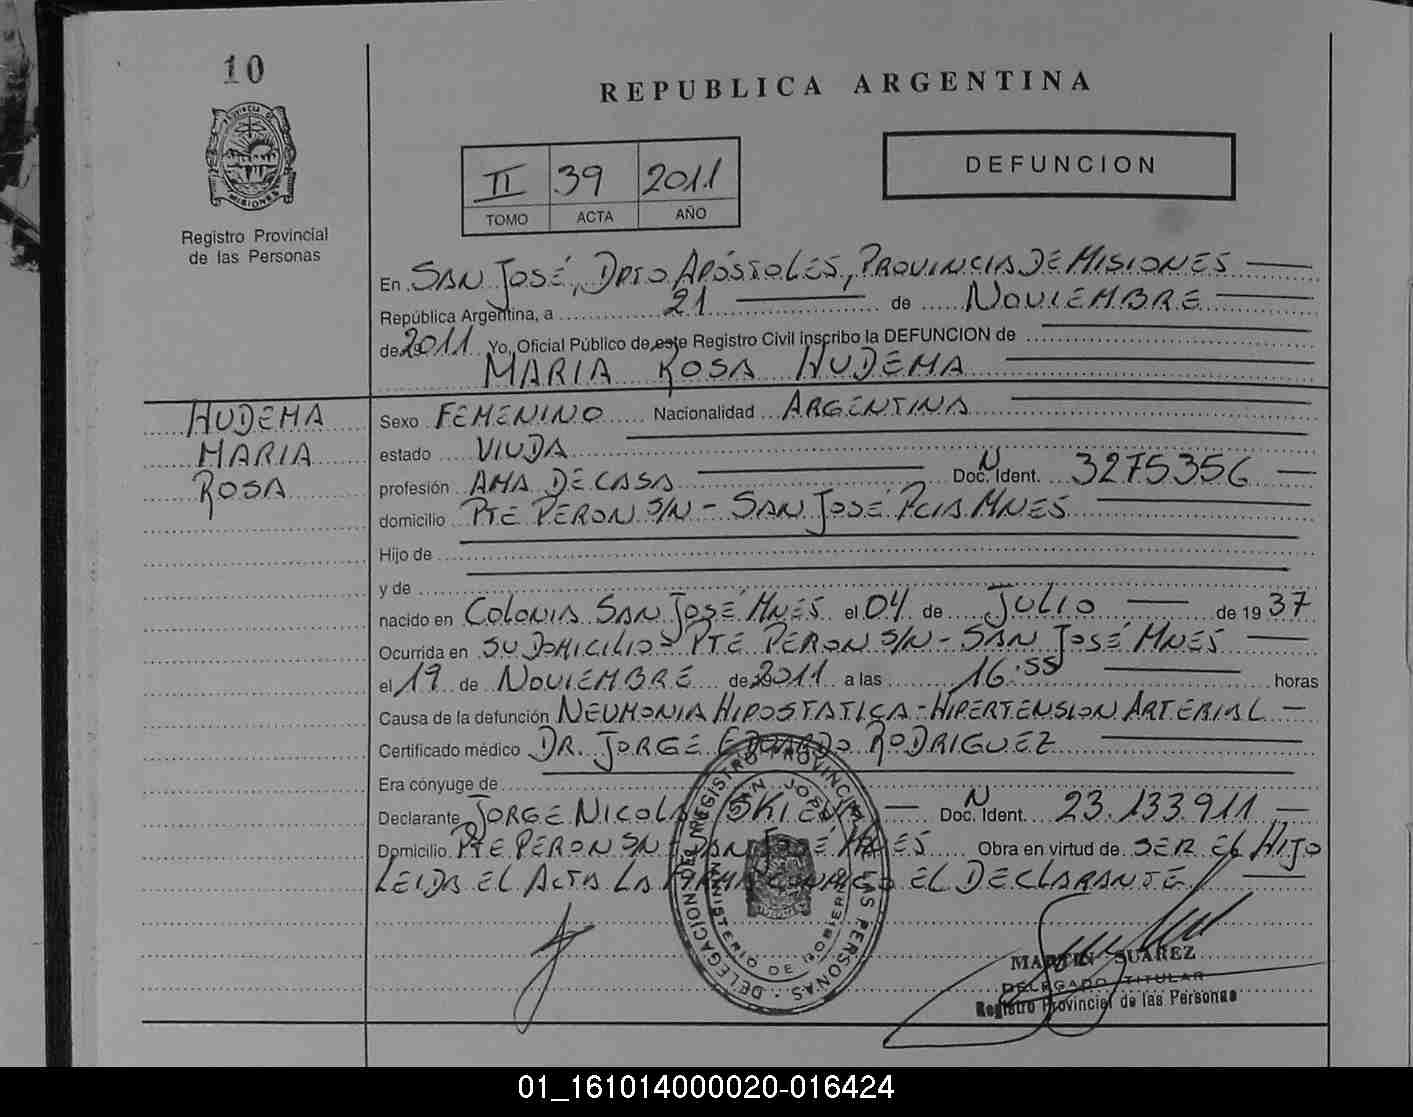 10
REPUBLICA ARGENTINA
PROVINCIA DE
MISIONES
Registro Provincial
de las Personas
II 39 2011
TOMO ACTA AÑO
DEFUNCION
En SAN JOSÉ, DPTO APÓSTOLES, PROVINCIA DE MISIONES
República Argentina, a 21 de NOVIEMBRE
de 2011 Yo, Oficial Público de este Registro Civil inscribo la DEFUNCION de
MARIA ROSA HUDEMA
HUDEMA
MARIA
ROSA
Sexo FEMENINO Nacionalidad ARGENTINA
estado VIUDA
profesión AMA DE CASA Doc. N Ident. 3275356
domicilio PTE PERON S/N - SAN JOSÉ PCIA MNES
Hijo de
y de
nacido en COLONIA SAN JOSÉ MNES el 04 de JULIO de 19 37
Ocurrida en SU DOMICILIO - PTE PERON S/N - SAN JOSÉ MNES
el 19 de NOVIEMBRE de 2011 a las 16:55 horas
Causa de la defunción NEUMONIA HIPOSTATICA - HIPERTENSION ARTERIAL
Certificado médico DR. JORGE EDUARDO RODRIGUEZ
Era cónyuge de
Declarante JORGE NICOLAS Doc. N Ident. 23.133.911
Domicilio PTE PERON S/N - SAN JOSÉ MNES Obra en virtud de SER EL HIJO
LEIDA EL ACTA LA FIRMA CONMIGO EL DECLARANTE
DELEGACION DEL REGISTRO PROVINCIAL DE LAS PERSONAS
SAN JOSE
MINISTERIO DE GOBIERNO
MARTIN SUAREZ
DELEGADO TITULAR
Registro Provincial de las Personas
01_161014000020-016424